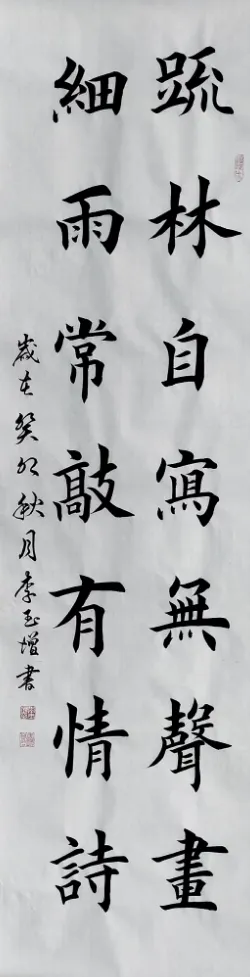 疏林自寫無聲畫
細雨常敲有情詩
歲在癸卯秋月李玉增書